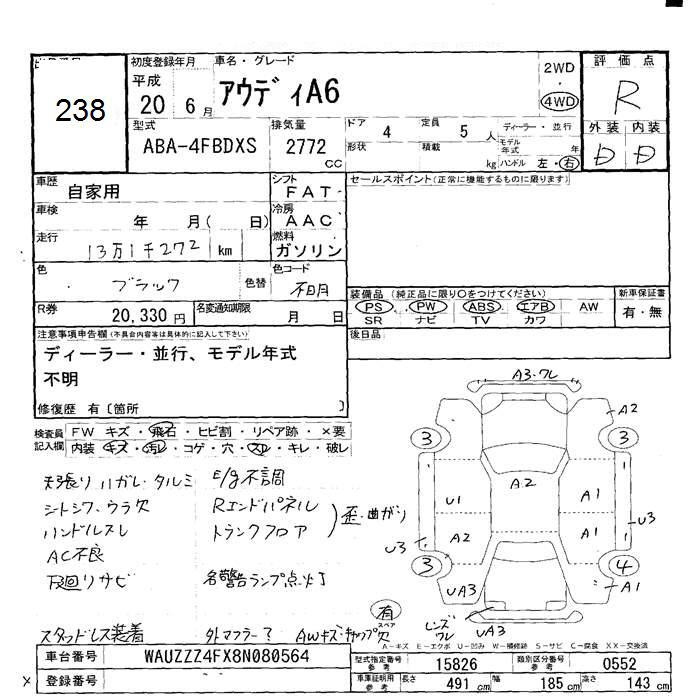 238
初度登録年月 車名・グレード
平成 20 6月 アウディA6
2WD
4WD
評価点
R
外装 内装
D D
型式 排気量
ABA-4FBDXS 2772 CC
ドア 4 定員 5人
形状 積載 kg
ディーラー・並行
モデル年式 年
ハンドル 左・右
車歴 自家用
シフト FAT
車検 年 月( 日)
冷房 AAC
走行 13万1千272 km
燃料 ガソリン
色 ブラック 色替
色コード 不明
R券 20,330円
名変通知期限 月 日
セールスポイント(正常に機能するものに限ります)
装備品(純正品に限り○をつけてください)
PS PW ABS エアB AW
SR ナビ TV カワ
新車保証書
有・無
後日品
注意事項申告欄(不具合内容等は具体的に記入して下さい)
ディーラー・並行、モデル年式
不明
修復歴 有〔箇所 〕
検査員記入欄
FW キズ・飛石・ヒビ割・リペア跡・×要
内装・キズ・汚レ・コゲ・穴・スレ・キレ・破レ
天張り ハガレ・タルミ E/g不調
シートシワ、ウラ穴 Rエンドパネル
ハンドルスレ トランクフロア 歪・曲がり
AC不良
下廻リサビ 各警告ランプ点灯
スタッドレス装着 外マフラー? AWキズ・キャップ欠
A3・ワレ
A2
3 3
A2
U1 A1
A2 A1
U3 U3
3 4
UA3 A1
有
スペア
レンズワレ
UA3
A-キズ E-エクボ U-凹み W-補修跡 S-サビ C-腐食 XX-交換済
車台番号 WAUZZZ4FX8N080564
× 登録番号
型式指定番号 参考 15826
類別区分番号 参考 0552
車庫証明用 参考 長さ 491cm 幅 185cm 高さ 143cm